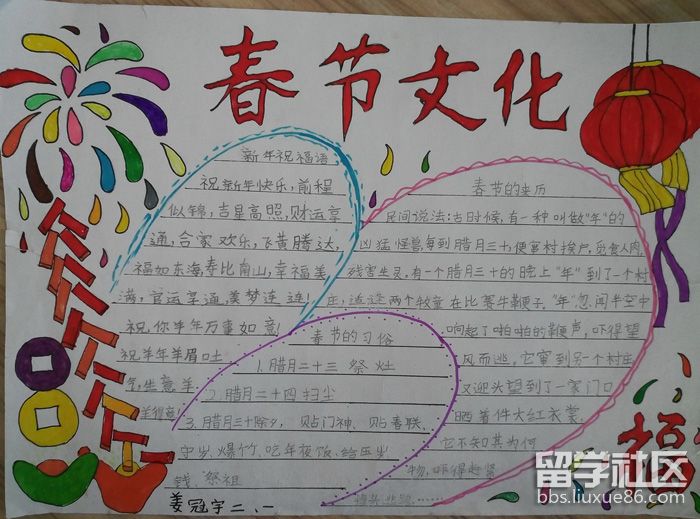 春节文化
新年祝福语
祝新年快乐，前程
似锦，吉星高照，财运亨
通，合家欢乐，飞黄腾达，
福如东海，寿比南山，幸福美
满，官运亨通，美梦连连！
祝你羊年万事如意！
祝羊年羊眉吐
气，生意羊
春节的来历
民间说法：古时候，有一种叫做"年"的
凶猛怪兽，每到腊月三十，便窜村挨户，觅食人肉，
残害生灵，有一个腊月三十的晚上"年"到了一个村
庄，适逢两个牧童在比赛牛鞭子，"年"忽闻半空中
响起了啪啪的牛鞭声，吓得望
风而逃，它窜到另一个村庄
又迎头望到了一家门口
晒着件大红衣裳
它不知其为何
物，吓得赶紧
掉头逃跑……
春节的习俗
1.腊月二十三 祭灶
2.腊月二十四 扫尘
3.腊月三十除夕，贴门神、贴春联、
守岁、爆竹、吃年夜饭、给压岁
钱、祭祖
福
姜冠宇 二、一
留学社区
bbs.liuxue86.com